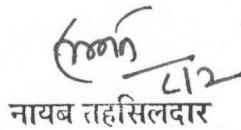 ८/२
नायब तहसिलदार